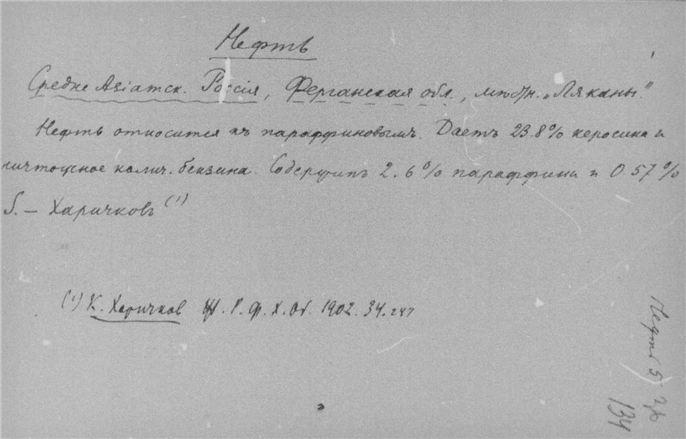 Нефть
Средне Азіатск. Россія, Ферганская обл., мѣстн. „Ляканы."
Нефть относится къ параффиновымъ. Даетъ 23.8% керосина и
ничтожное колич. бензина. Содержитъ 2.6% параффина и 0.57%
S. — Харичковъ (1)
(1) К. Харичков Ж. Р. Ф. Х. Об. 1902. 34. 247
Нефть 5
134